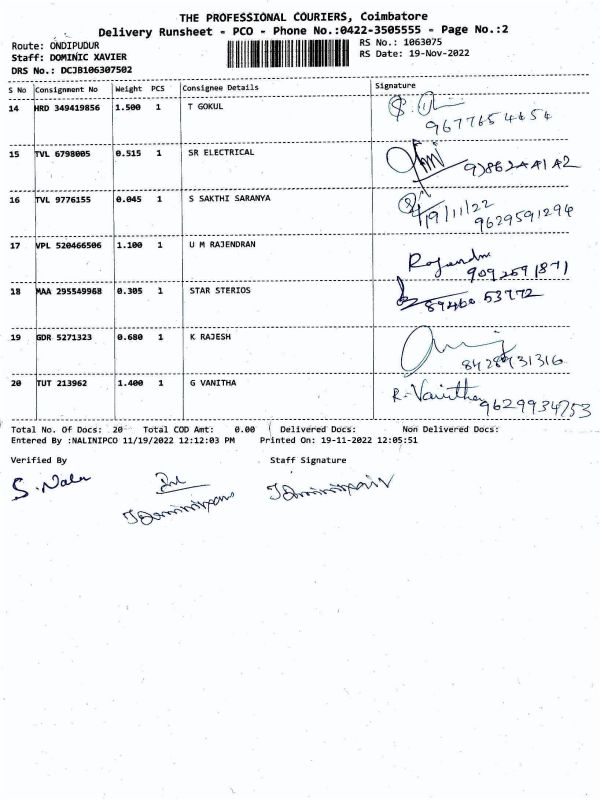 THE PROFESSIONAL COURIERS, Coimbatore
Delivery Runsheet - PCO - Phone No.:0422-3505555 - Page No.:2
Route: ONDIPUDUR
RS No.: 1063075
Staff: DOMINIC XAVIER
RS Date: 19-Nov-2022
DRS No.: DCJB106307502
S No Consignment No Weight PCS Consignee Details Signature
14 HRD 349419856 1.500 1 T GOKUL
9677654654
15 TVL 6798005 0.515 1 SR ELECTRICAL
16 TVL 9776155 0.045 1 S SAKTHI SARANYA
19/11/22
9629591294
17 VPL 520466506 1.100 1 U M RAJENDRAN
9092591871
18 MAA 295549968 0.305 1 STAR STERIOS
89460 53772
19 GDR 5271323 0.680 1 K RAJESH
8428931316
20 TUT 213962 1.400 1 G VANITHA
R. Vanitha
9629934753
Total No. Of Docs: 20 Total COD Amt: 0.00 Delivered Docs: Non Delivered Docs:
Entered By :NALINIPCO 11/19/2022 12:12:03 PM Printed On: 19-11-2022 12:05:51
Verified By Staff Signature